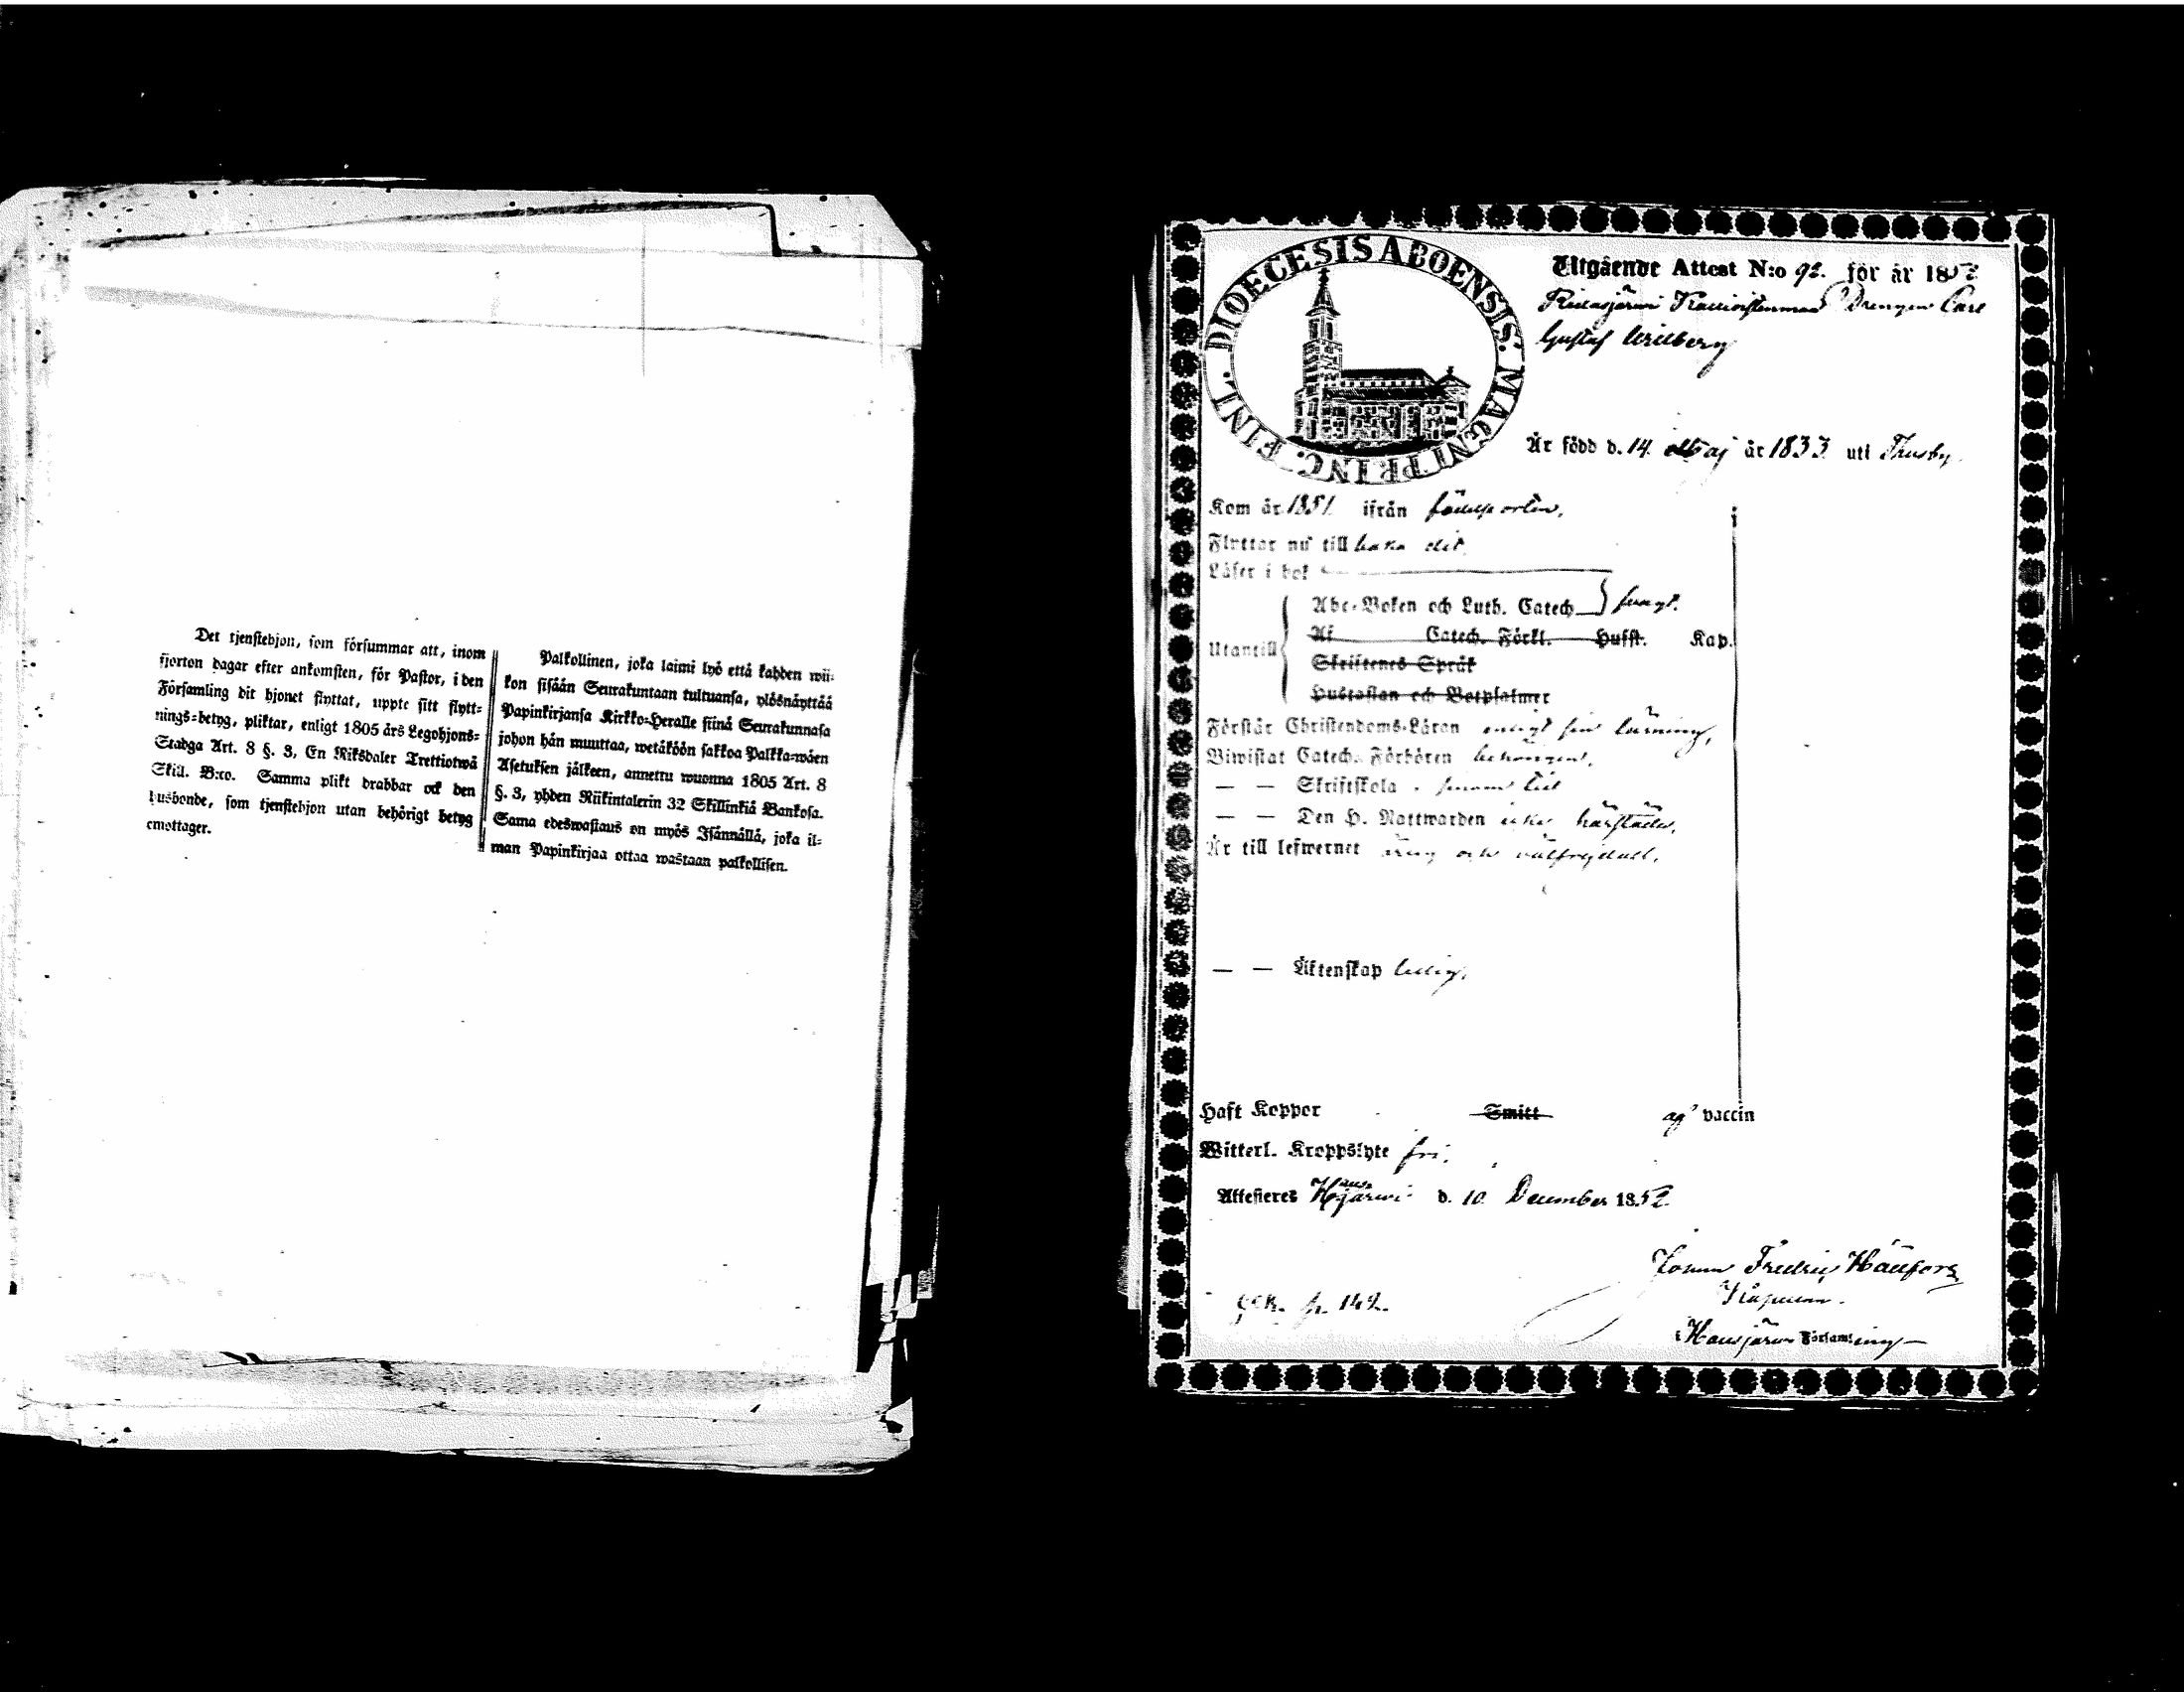 Det tjenstehjon, som försummar att, inom
fjorton dagar efter ankomsten, för Pastor, i den
Församling dit hjonet flyttat, uppte sitt flytt-
nings-betyg, pliktar, enligt 1805 års Legohjons-
Stadga Art. 8 §. 3, En Riksdaler Trettiotwå
Skill. B:co. Samma plikt drabbar ock den
husbonde, som tjenstehjon utan behörigt betyg
emottager.
Palkollinen, joka laimi lyö että kahden wii-
kon sisään Seurakuntaan tultuansa, ylösnäyttää
Papinkirjansa Kirkko-Heralle siinä Seurakunnasa
johon hän muuttaa, wetäköön sakkoa Palkka-wäen
Asetuksen jälkeen, annettu wuonna 1805 Art. 8
§. 3, yhden Riikintalerin 32 Skillinkiä Bankosa.
Sama edeswastaus on myös Isännällä, joka il-
man Papinkirjaa ottaa wastaan palkollisen.
DIOECESIS ABOENSIS. MAGNI PRINC. FINL.
Utgående Attest N:o 92. för år 1852
Drengen Carl
Gustaf
Är född d. 14. Maj år 1833 uti Thusby.
Kom år 1851 ifrån födelseorten.
Flyttar nu till baka dit.
Läser i bok
Abc-Boken och Luth. Catech. svagt.
Utantill
Af Catech. Förkl. Hufst. Kap.
Skriftenes Språk
Hustaflan och Botpsalmer
Förstår Christendoms-Läran enligt sin lärning,
Biwistat Catech. Förhören behörigen.
— — Skriftskola
— — Den H. Nattwarden icke härstädes.
Är till lefwernet ärlig och välfrejdad.
— — Äktenskap ledig.
Haft Koppor Smitt vaccin
Witterl. Kroppslyte fri.
Attesteres Hausjärwi d. 10 December 1852
Fredric
i Hausjärwi Församling